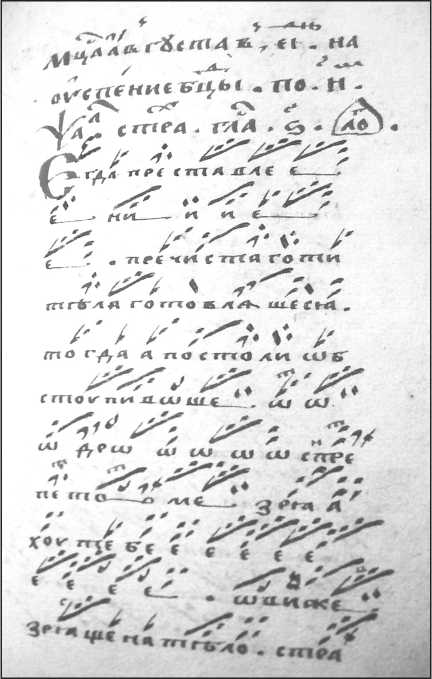 мц҃а аѵгꙋста в҃, еі҃ . на
оуспение бц҃ы . по . н .
ѱал стра . гла . ѕ҃ . ло .
Егда преставле е
е ни и и е
е . пречистаго ти
тѣла готовлѧшесѧ .
тогда апостоли ѡб
стоупивѡше ѡ ѡ
ѡ дрѡ ѡ ѡ ѡ ѡ с тре
пето о ме зрѧ а
хоу тебе е е е е е
е е е е . ѡви же
зрѧще на тѣло . стра